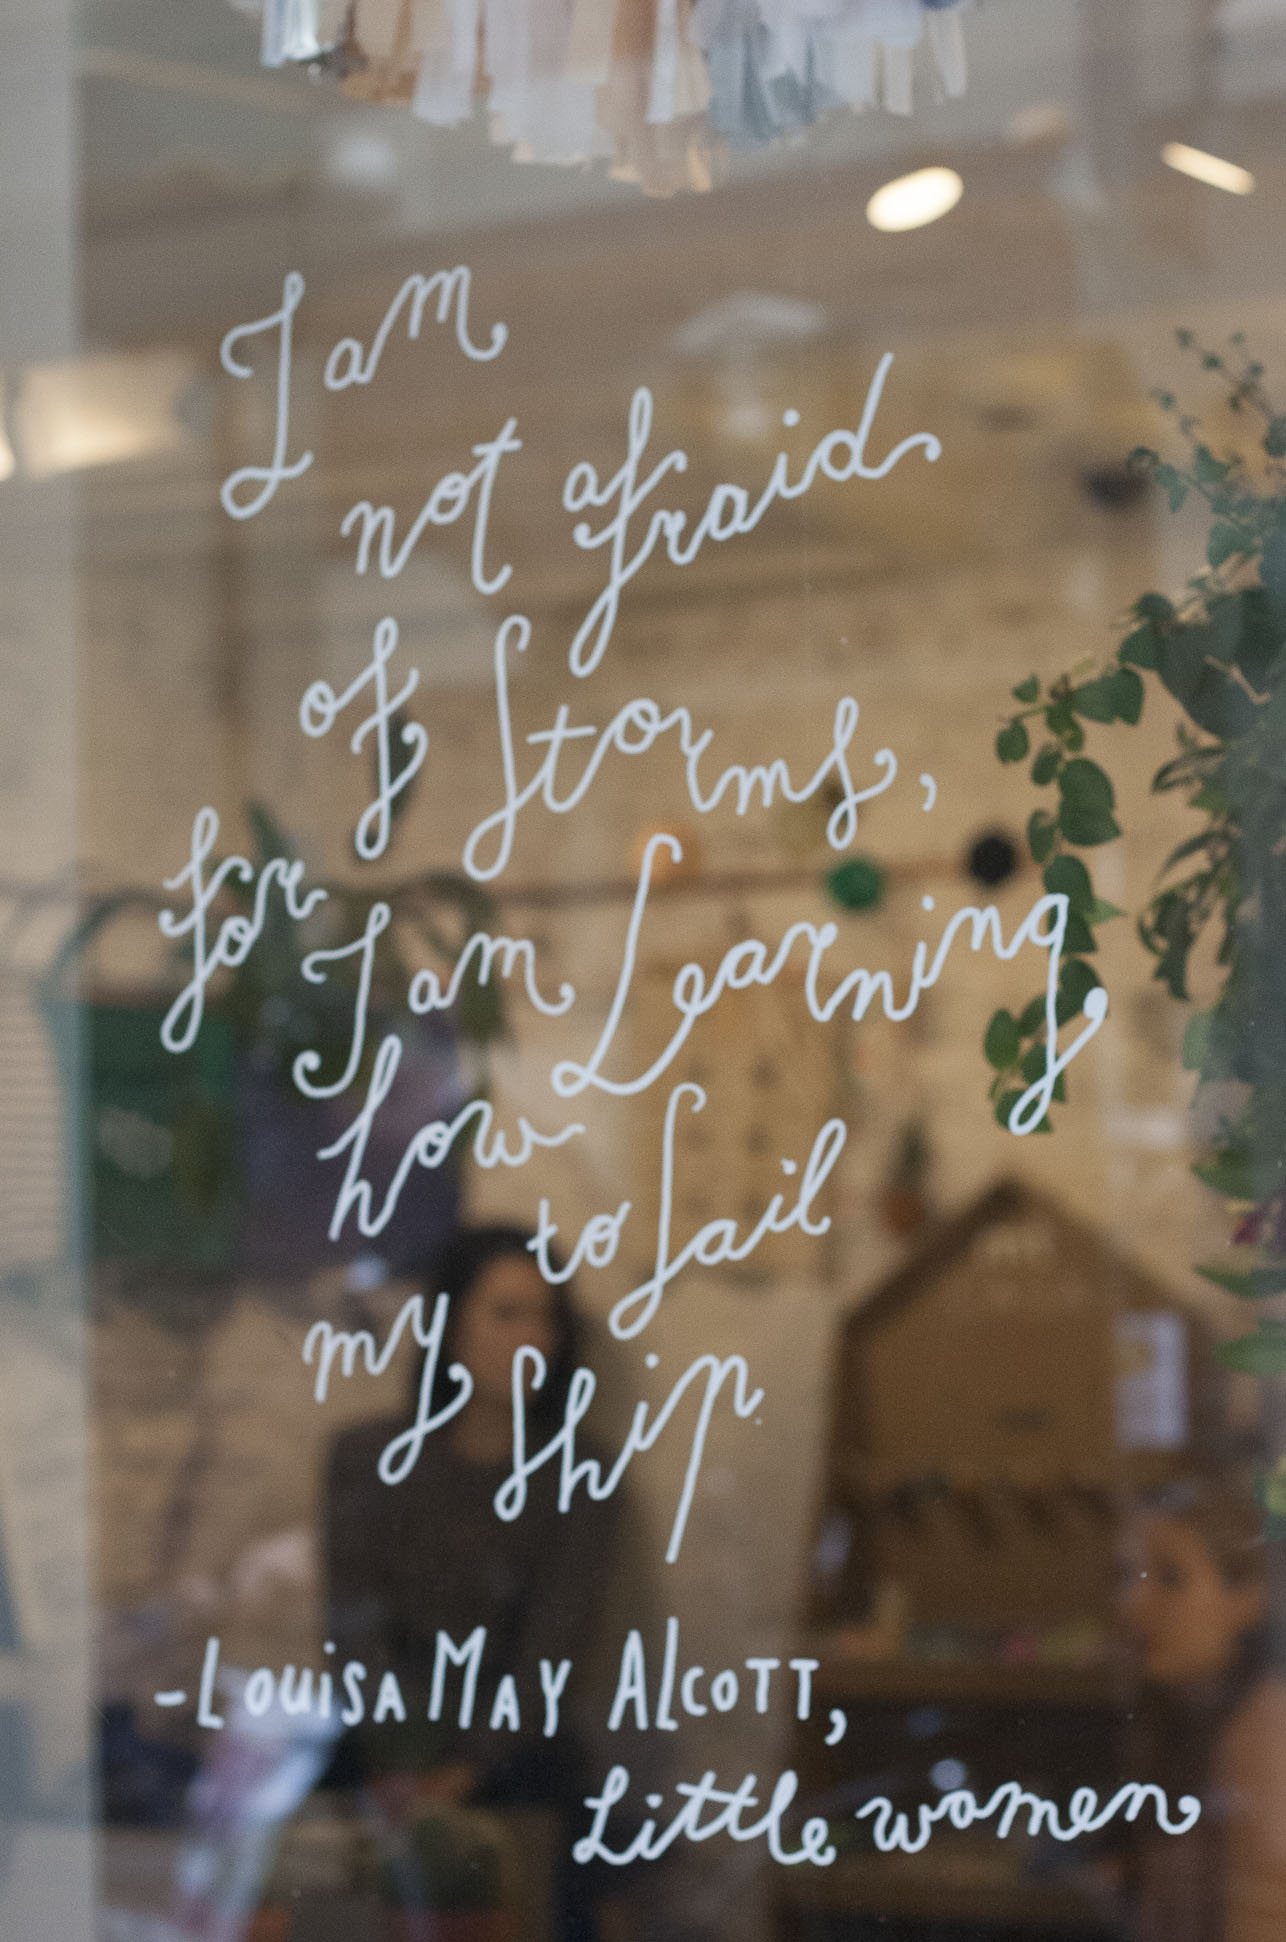 I am
not afraid
of storms,
for I am Learning
how to sail
my ship
-Louisa May Alcott,
Little women